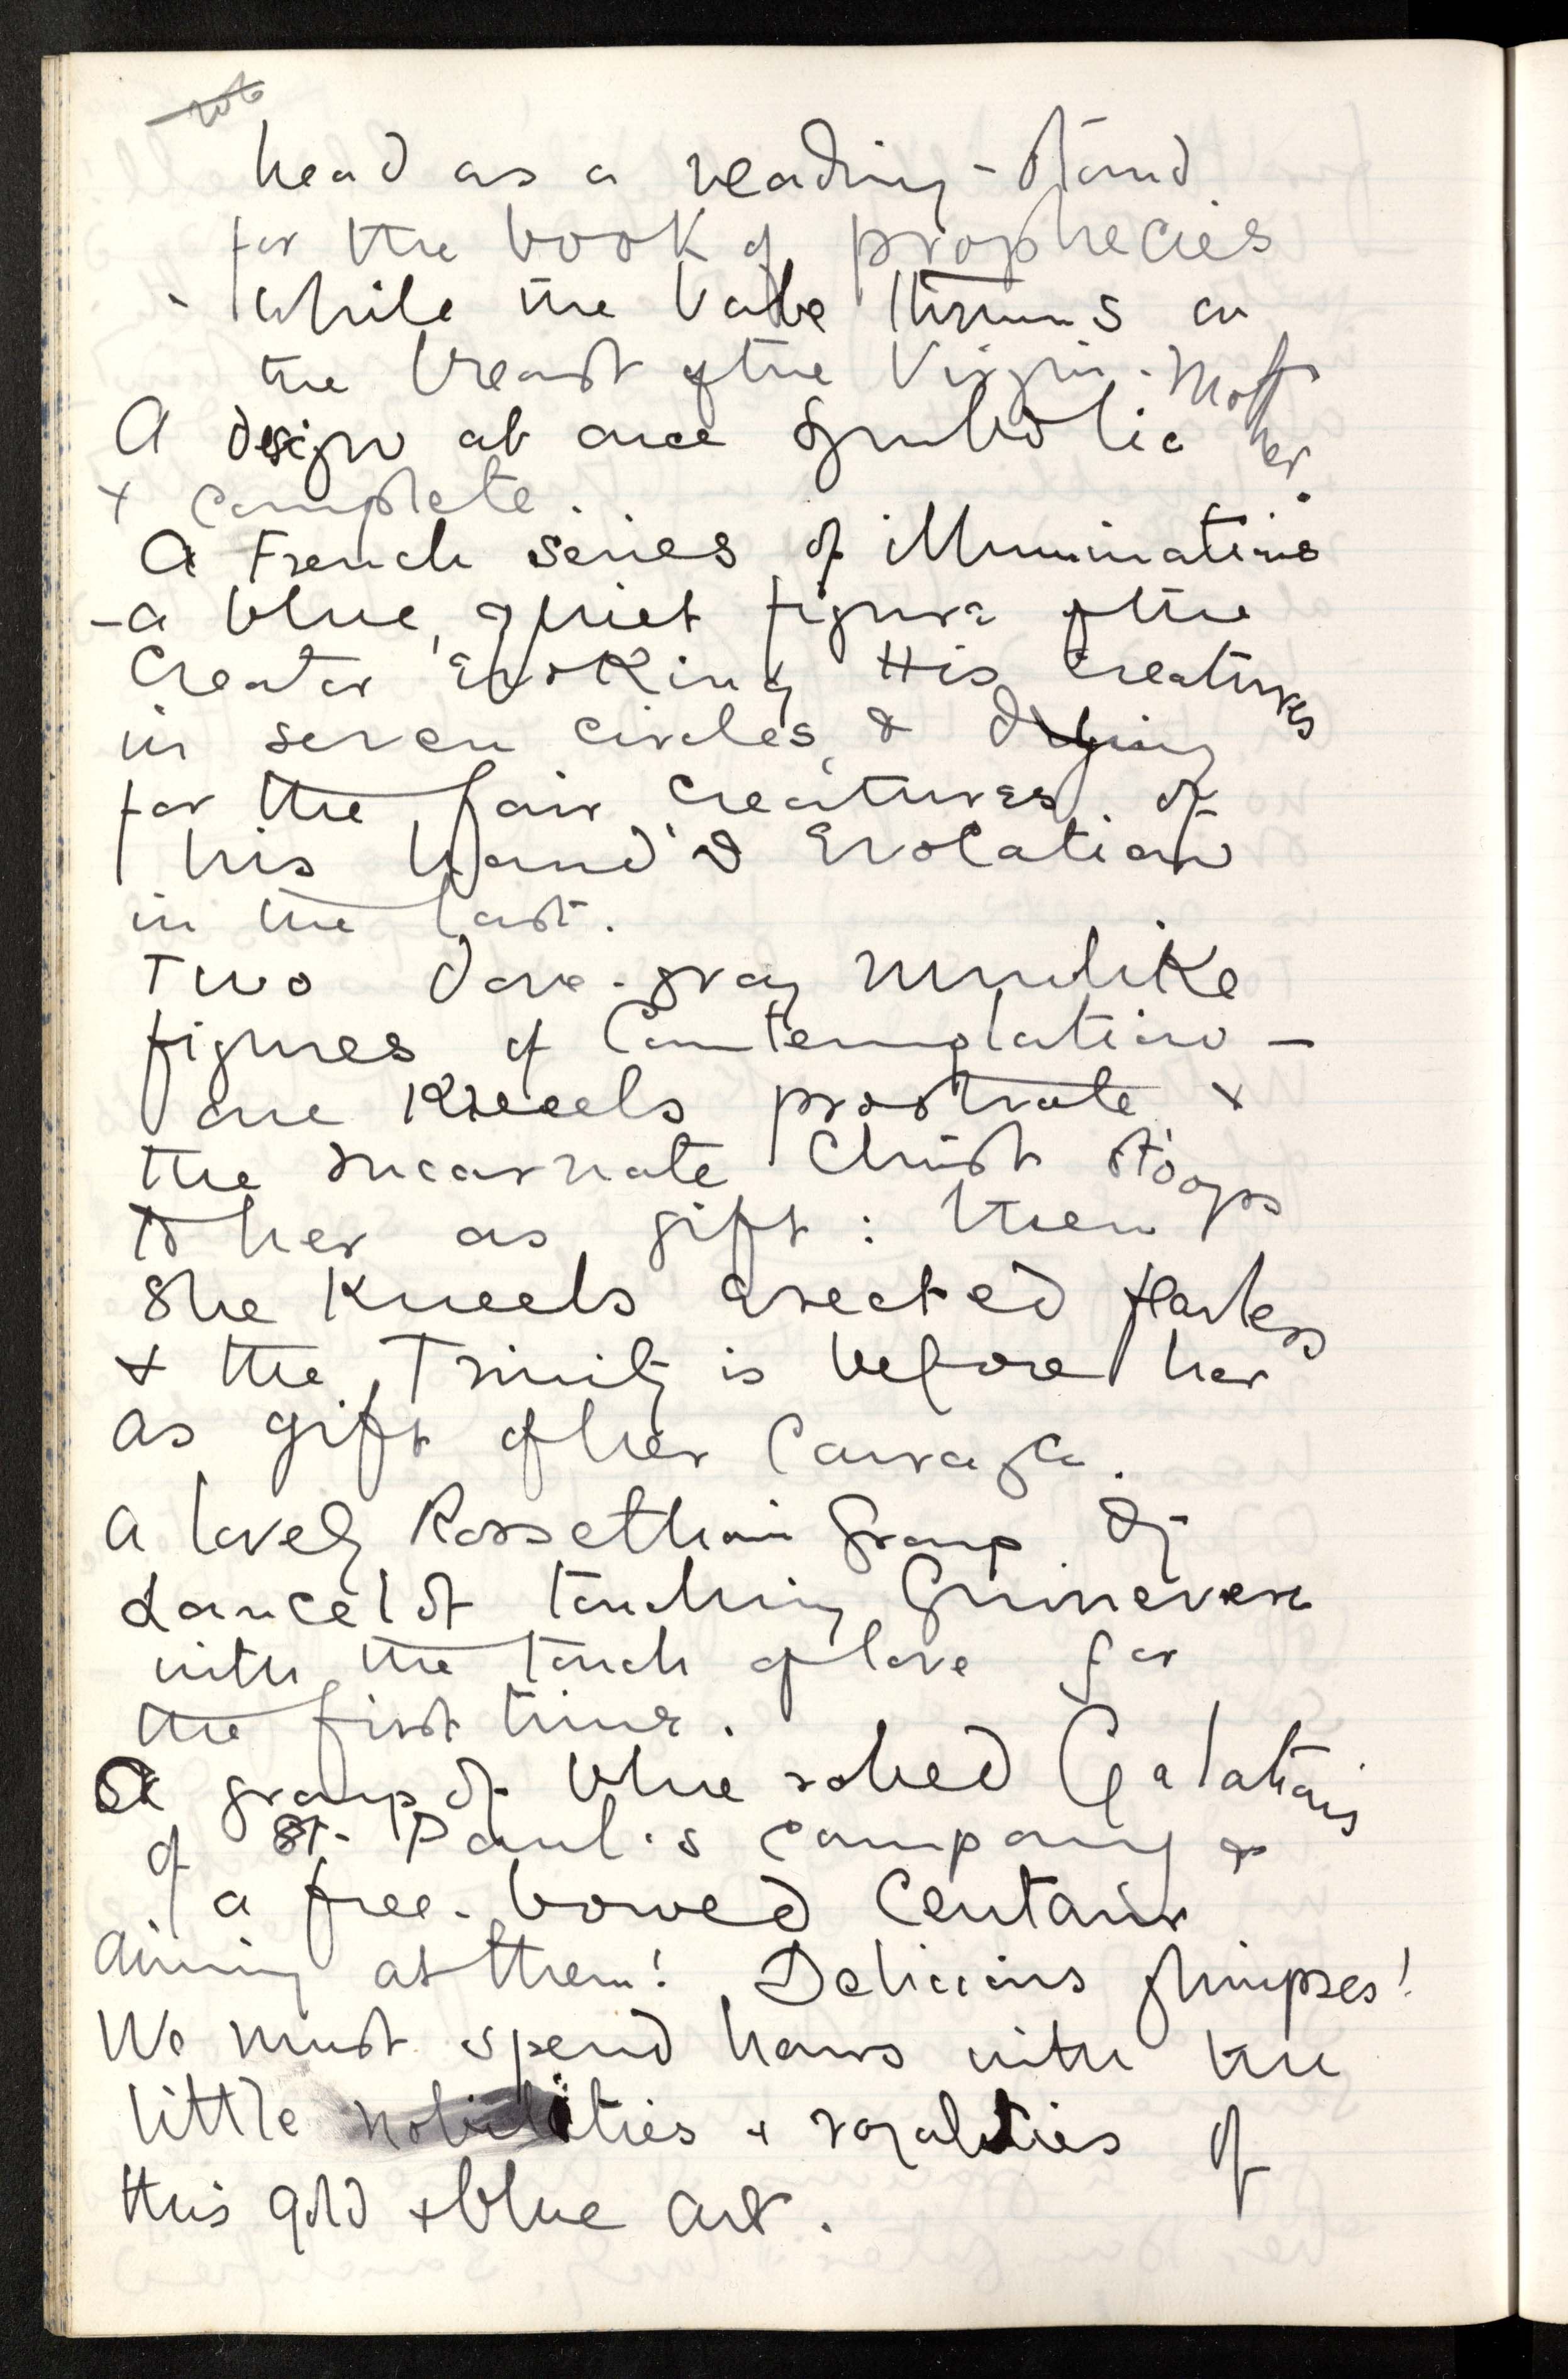 head as a reading-stand
for the book of prophecies
- while the babe thrums on
the breast of the Virgin-Mother.
A design at once symbolic
+ complete.
A French series of illuminations
- a blue, quiet figure of the
Creator evoking His creatures
in seven circles, & dying
for the fair creatures of
his hand's evocation
in the last.
Two dove-gray nunlike
figures of Contemplation —
one kneels prostrate +
the Incarnate Christ stoops
to her as gift: then
she kneels erected fearless
+ the Trinity is before her
as gift of her courage.
A lovely Rossettian group of
Lancelot touching Guinevere
with the touch of love for
the first time.
A group of blue robed Galatians
of St. Paul's company &
of a free-bowed Centaur
aiming at them! Delicious glimpses!
We must spend hours with the
little nobilities + royalties of
this gold + blue art.